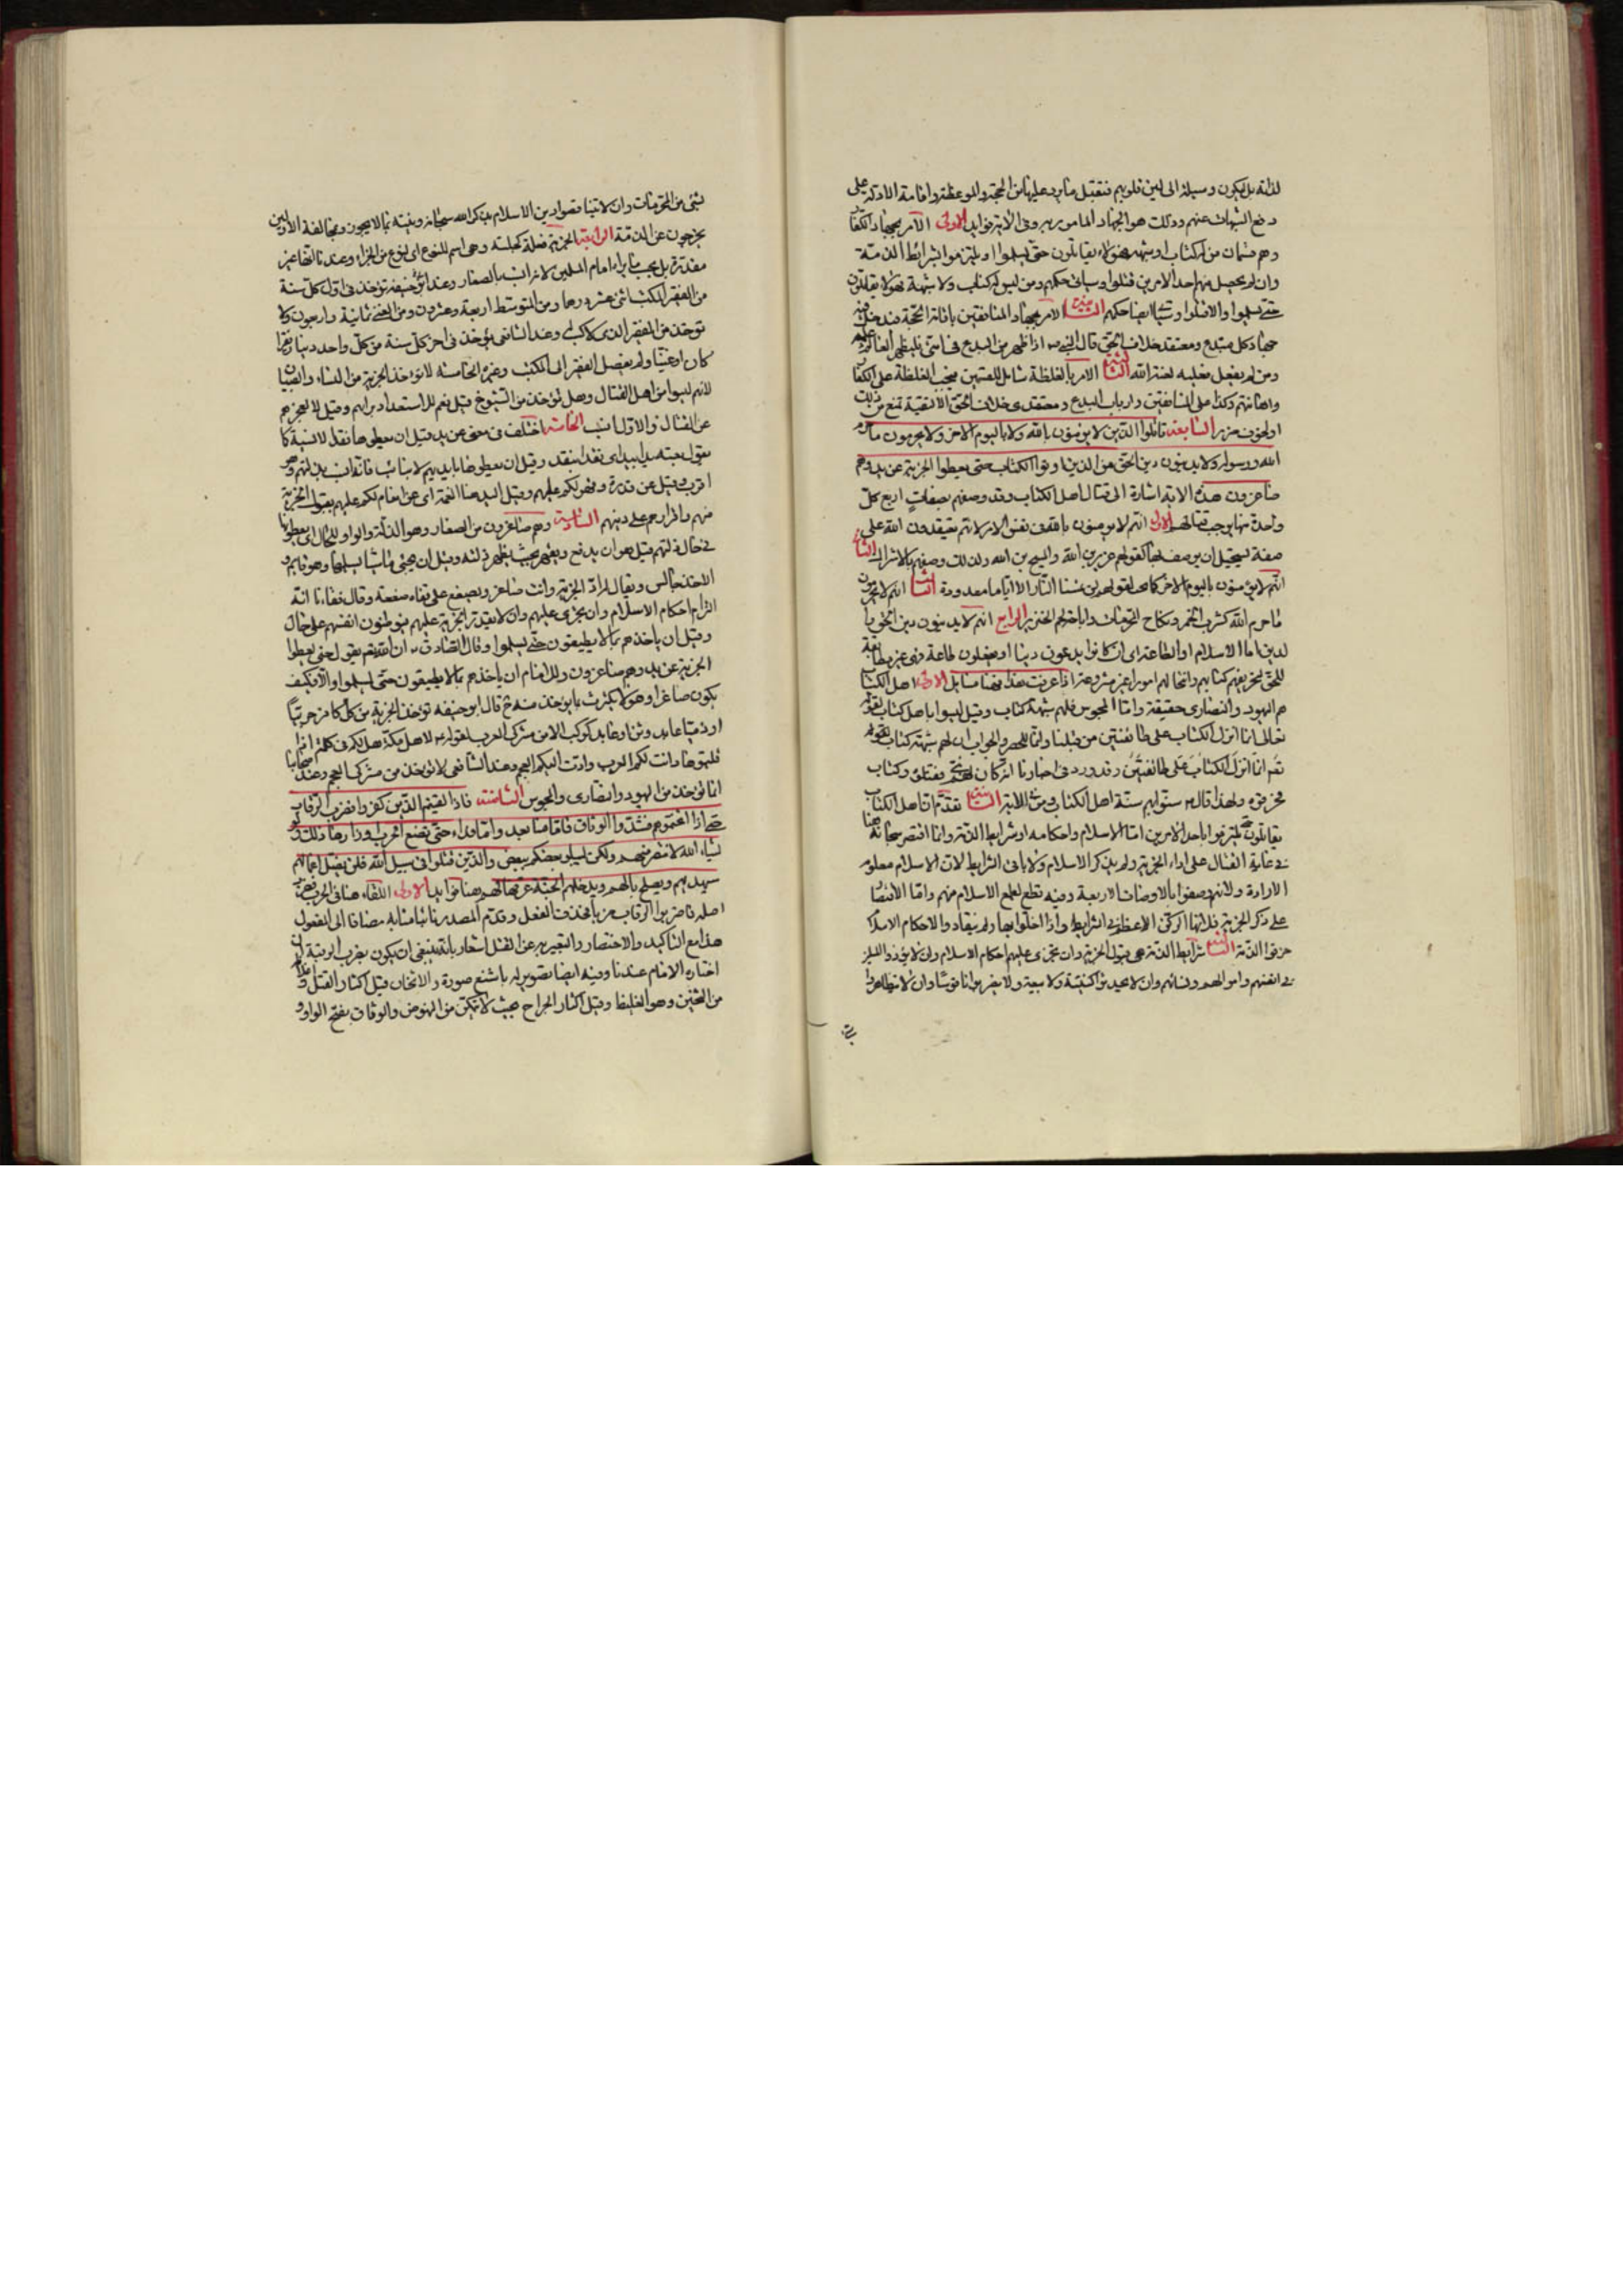 لذاته بل يكون وسيلة الى لين قلوبهم فتقبل ما يرد عليها من الحجة والموعظة واقامة الادلة على
دفع الشبهات عنهم وذلك هو الجهاد المامور به وفى الآية فوايد الاولى الامر بجهاد الكفار
وهم قسمان من له كتاب او شبهه فهؤلاء يقاتلون حتى يسلموا او يلتزموا بشرائط الذمة
وان لم يحصل منهم احد الامرين قتلوا وسياتى حكمهم ومن ليس له كتاب ولا شبهة فهؤلاء يقاتلون
حتى يسلموا والا قتلوا وسياتى ايضا حكمهم الثانية الامر بجهاد المنافقين باقامة الحجة فيدخل فيه
جهاد كل مبتدع ومعتقد خلاف الحق قال النبى ص اذا ظهر من البدع فى امتى فليظهر العالم علمه
ومن لم يفعل فعليه لعنة الله الثالثة الامر بالغلظة شامل للقسمين فيجب الغلظة على الكفار
واهانتهم وكذا على المنافقين وارباب البدع ومعتقدى خلاف الحق الا لتقية تمنع من ذلك
او لخوف ضرر السابعة قاتلوا الذين لا يؤمنون بالله ولا باليوم الآخر ولا يحرمون ما حرم
الله ورسوله ولا يدينون دين الحق من الذين اوتوا الكتاب حتى يعطوا الجزية عن يد وهم
صاغرون هذه الآية اشارة الى قتال اهل الكتاب وقد وصفهم بصفات اربع كل
واحدة منها يوجب قتالهم الاولى انهم لا يؤمنون بالله فى نفس الامر لانهم يعتقدون الله على
صفة يستحيل ان يوصف بها كقولهم عزير بن الله والمسيح بن الله ولذلك وصفهم بالاشراك الثانى
انهم لا يؤمنون باليوم الآخر كما هو لقولهم لن تمسنا النار الا اياما معدودة الثالث انهم لا يحرمون
ما حرم الله كشرب الخمر ونكاح المحرمات واباحتهم الخنزير الرابع انهم لا يدينون دين الحق
لدين اما الاسلام او الطاعة اى ان كانوا يدعون دينا او يفعلون طاعة فهى غير مطابقة
للحق لتحريفهم كتابهم وانتحالهم امورا غير مشروعة اذا عرفت هذا فهنا مسايل الاولى اهل الكتاب
هم اليهود والنصارى حقيقة واما المجوس فلهم شبهة كتاب وقيل ليسوا باهل كتاب لقوله
تعالى انما انزل الكتاب على طائفتين من قبلنا وانما للحصر والجواب ان لهم شبهة كتاب لقوله
تعم انما انزل الكتاب على طائفتين وقد ورد فى اخبارنا انه كان لهم نبى فقتلوه وكتاب
فحرقوه ولهذا قال ع سنوا بهم سنة اهل الكتاب الثانية تقدم ان اهل الكتاب
يقاتلون حتى يلتزموا باحد الامرين اما الاسلام واحكامه او شرايط الذمة وانما اقتصر سبحانه هنا
فى غاية القتال على اداء الجزية ولم يذكر الاسلام ولا باقى الشرايط لان الاسلام معلوم
الارادة ولانهم وصفوا بالاوصاف الاربعة وفيه قطع لطمع الاسلام منهم واما الاقتصار
على ذكر الجزية فلانها الركن الاعظم فى الشرايط واذا اخلوا بها ولم ينقادوا لاحكام الاسلام
خرقوا الذمة الثالثة شرايط الذمة هى قبول الجزية وان تجرى عليهم احكام الاسلام وان لا يؤذوا المسلمين
فى انفسهم واموالهم ونسائهم وان لا يحدثوا كنيسة ولا بيعة ولا يضربوا ناقوسا وان لا يتظاهروا
بشئ من المحرمات وان لا يتناقصوا دين الاسلام بذكر الله سبحانه ونبيه بما لا يجوز ومخالفة الاولين
يخرجون عن الذمة الرابعة الجزية فعلة كجلسة وهى اسم للنوع اى نوع من الجزاء وعندنا انها غير
مقدرة بل بحسب ما يراه امام المسلمين لانه انسب بالصغار وعند ابى حنيفة تؤخذ فى اول كل سنة
من الفقير المكتسب اثنى عشر درهما ومن المتوسط اربعة وعشرون ومن الغنى ثمانية واربعون ولا
تؤخذ من الفقير الذى لا كسب له وعند الشافعى تؤخذ فى آخر كل سنة من كل واحد دينار فقيرا
كان او غنيا ولم يفصل الفقير الى المكتسب وغيره الخامسة لا تؤخذ الجزية من النساء والصبيان
لانهم ليسوا من اهل القتال وهل تؤخذ من الشيوخ قيل نعم للاستعداد برايهم وقيل لا لعجزهم
عن القتال والاول انسب الخامسة اختلف فى معنى عن يد فقيل ان يعطوها نقدا لا نسية كما
يقول بعته يدا بيد اى نقدا بنقد وقيل ان يعطوها بايديهم لا بنائب فانه انسب بذلتهم وهو
اقرب وقيل عن قدرة وقهر لكم عليهم وقيل اليد هنا النعمة اى عن انعام لكم عليهم بقبول الجزية
منهم واقرارهم على دينهم السادسة وهم صاغرون من الصغار وهو الذلة والواو للحال اى يعطونها
فى حال ذلتهم قيل هو ان يدفع ويقهر بحيث يظهر ذلته وقيل ان يجئ ماشيا يسلمها وهو قايم و
الاخذ جالس ويقال له اد الجزية وانت صاغر ويصفع على قفاه صفعة وقال فقهاؤنا انه
التزام احكام الاسلام وان يجرى عليهم وان لا يقدر الجزية عليهم فيوطنون انفسهم على حال
وقيل ان ياخذهم بما لا يطيقون حتى يسلموا وقال الصادق ع ان الله تعم يقول حتى يعطوا
الجزية عن يد وهم صاغرون وللامام ان ياخذهم بما لا يطيقون حتى يسلموا والا فكيف
يكون صاغرا وهو لا يكترث بما يؤخذ منه ع قال ابو حنيفه تؤخذ الجزية من كل كافر حربيا
او ذميا عابد وثن او عابد كوكب الا من مشركى العرب لقوله ع لاهل مكة هل لكم فى كلمة اذا
قلتموها دانت لكم العرب وادت اليكم العجم وعند الشافعى لا تؤخذ من مشركى العجم وعند اصحابنا
انما تؤخذ من اليهود والنصارى والمجوس الثامنة فاذا لقيتم الذين كفروا فضرب الرقاب
حتى اذا اثخنتموهم فشدوا الوثاق فاما منا بعد واما فداء حتى تضع الحرب اوزارها ذلك ولو
يشاء الله لانتصر منهم ولكن ليبلو بعضكم ببعض والذين قتلوا فى سبيل الله فلن يضل اعمالهم
سيهديهم ويصلح بالهم ويدخلهم الجنة عرفها لهم هنا فوايد الاولى اللقاء هنا فى الحرب
اصله فاضربوا الرقاب ضربا فحذف الفعل وقدم المصدر نائبا منابه مضافا الى المفعول
هذا مع التاكيد والاختصار والتعبير به عن القتل اشعار بانه ينبغى ان يكون بضرب الرقبة
اختاره الامام عندنا وفيه ايضا تصوير له باشنع صورة والاثخان قيل اكثار القتل
من الثخين وهو الغليظ وقيل اكثار الجراح بحيث لا يتمكن من النهوض والوثاق بفتح الواو و